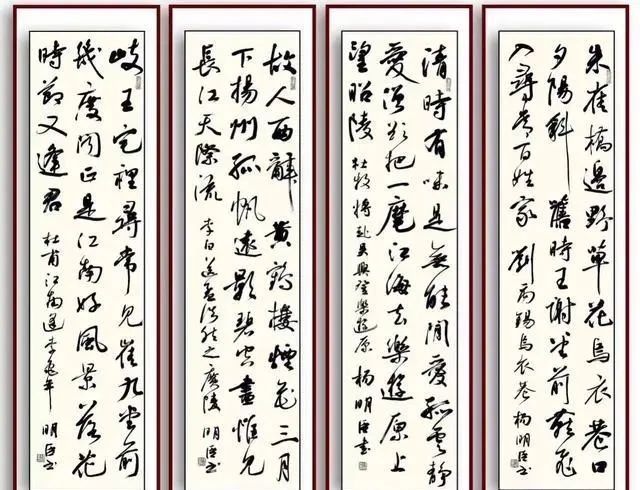 朱雀橋邊野草花烏衣巷口
夕陽斜舊時王謝堂前燕飛
入尋常百姓家 劉禹錫烏衣巷 楊明臣書
清時有味是無能閒愛孤雲靜
愛僧欲把一麾江海去樂遊原上
望昭陵 杜牧將赴吳興登樂遊原 楊明臣書
故人西辭黃鶴樓煙花三月
下揚州孤帆遠影碧空盡惟見
長江天際流 李白送孟浩然之廣陵 明臣書
岐王宅裡尋常見崔九堂前
幾度聞正是江南好風景落花
時節又逢君 杜甫江南逢李龜年 明臣書